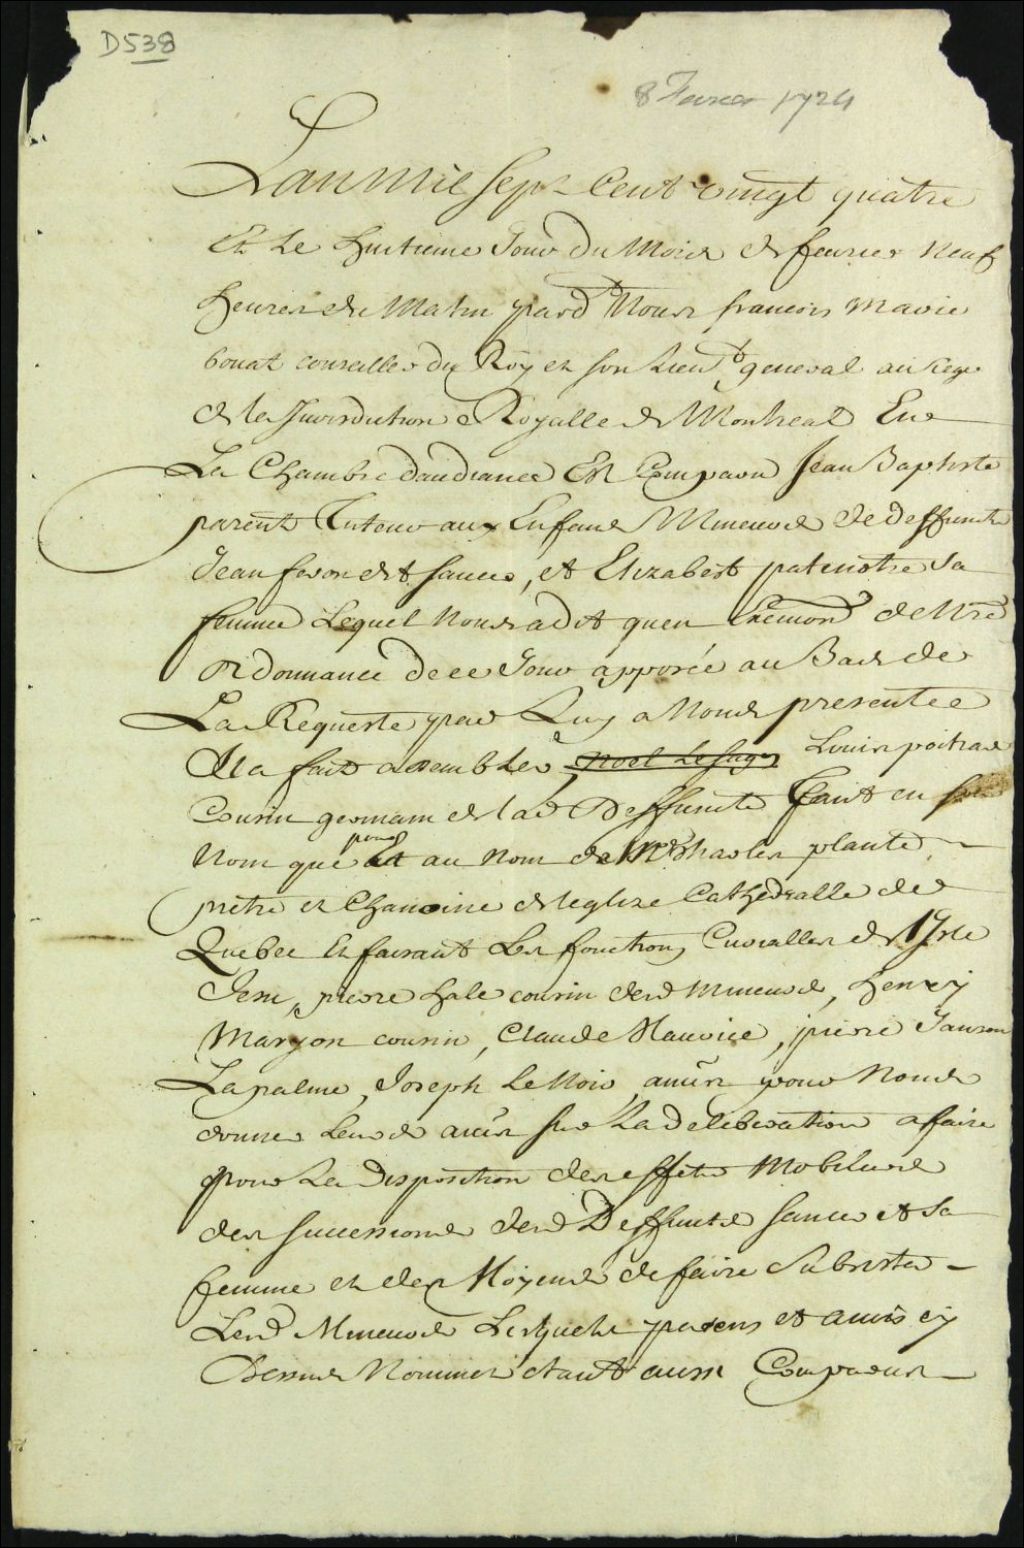 D538
8 Fevrier 1724
Lan Mil Sept Cent vingt quatre
Et Le huitieme Jour du Mois de fevrier Neuf
heures du Matin pard Nous francois Marie
bouat conseiller du Roy et son Lieut general au siege
de la Jurisdiction Royalle de Montreal En
La Chambre daudiance Est Comparu Jean Baptiste
parent Tuteur aux Enfans Mineurs de deffunts
Jean favon dit sancer, et Elizabeth patenostre Sa
femme Lequel Nous a dit quen de Nre
Ordonnance de ce Jour apposée au Bas de
La Requeste par Luy a Nous presentée
Il a fait assembler Noel Louis poitras
Cousin germain de lad Deffunte Tant en son
Nom que pour Et au Nom de Mr Charles plante
pretre et Chanoine de leglize Cathedralle de
Quebec Et faisant Les fonctions Curialles de l'Isle
Jesu, pierre hale cousin desd Mineurs, henry
Maryon cousin, Claude Maurice, pierre Janson
Lapalme, Joseph Le Noir, amis pour Nous
donner Leurs avis sur La Deliberation a faire
pour La Disposition des effets Mobiliers
des successions desd Deffunts sancer et Sa
femme et des Moyens de faire Subsister
Lesd Mineurs Lesquels parens et amis cy
Dessus Nommés etant aussi Comparus